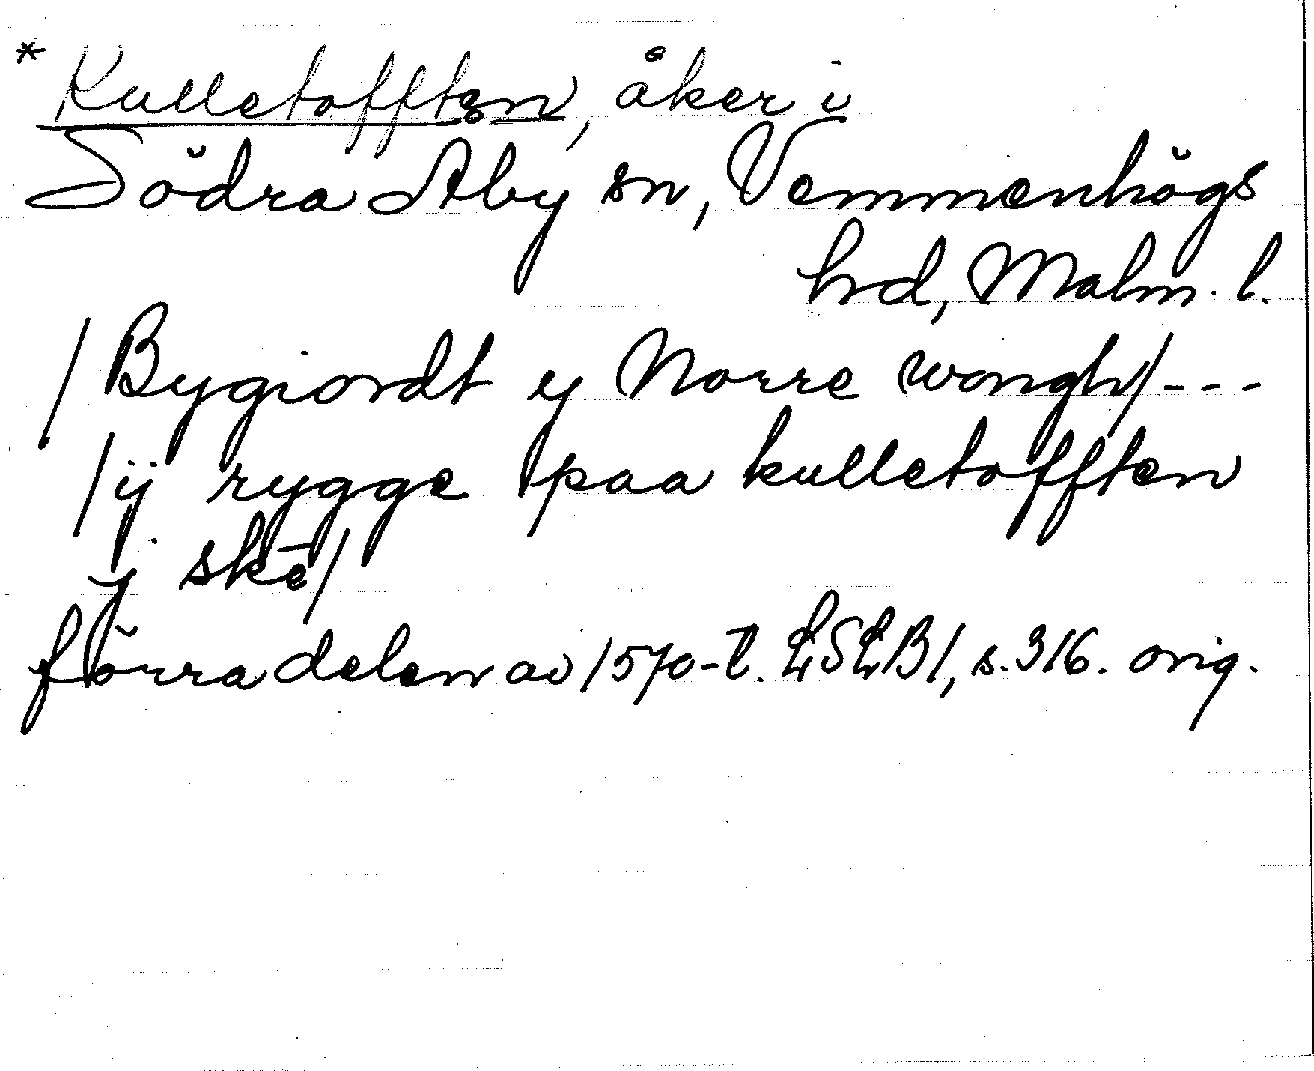 * Kulletofften, åker i
Södra Åby sn, Vemmenhögs
hd, Malm. l.
/Bygiordt y Norre wongh/---
/ij rygge paa kulletofften
y skē/
förra delen av 1570-t. LSLB1, s. 316. orig.